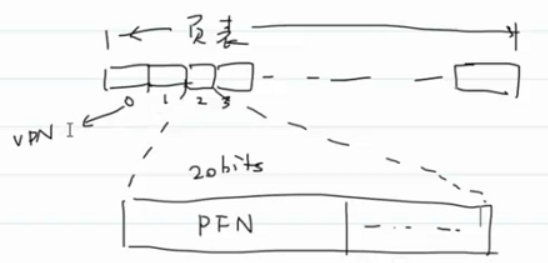 页表
0 1 2 3
VPN
20bits
PFN